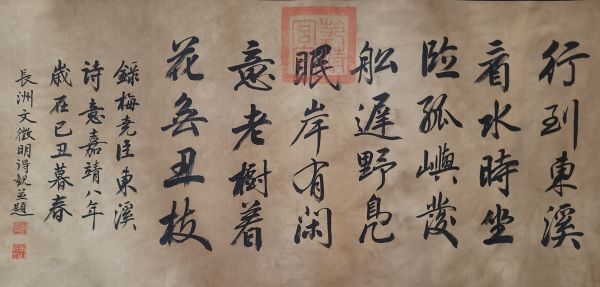 行到東溪
看水時坐
臨孤嶼發
船遲野鳧
眠岸有閑
意老樹着
花無丑枝
錄梅堯臣東溪
詩意嘉靖八年
歲在己丑暮春
長洲文徵明得觀並題